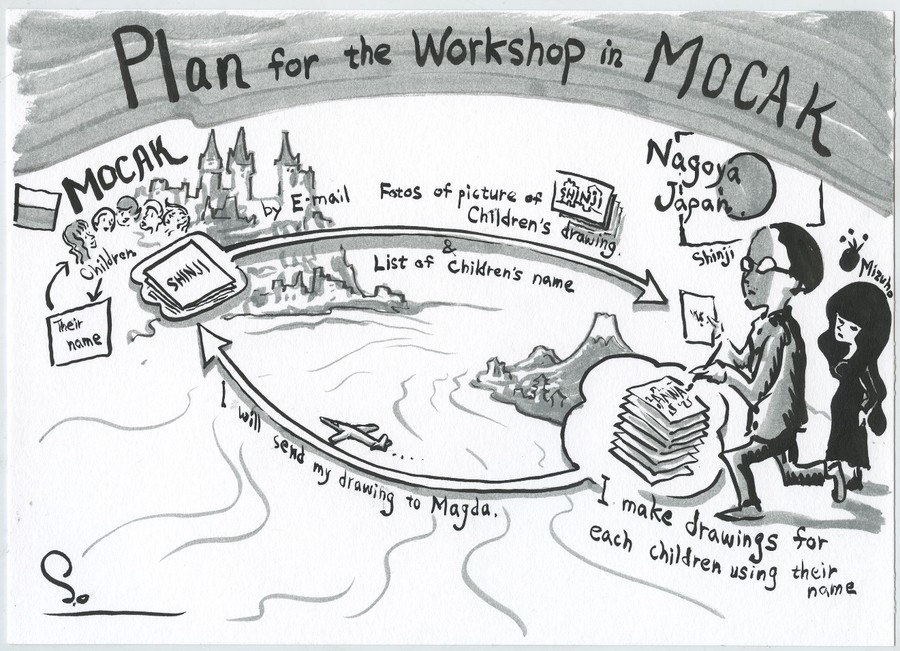 Plan for the Workshop in MOCAK
MOCAK
Children
Their
name
SHINJI
by E-mail
Fotos of picture of
Children's drawing.
SHINJI
&
List of Children's name
Nagoya
Japan
Shinji
Mizuho
ANNA
I make drawings for
each children using their
name
I will send my drawing to Magda.
S.o